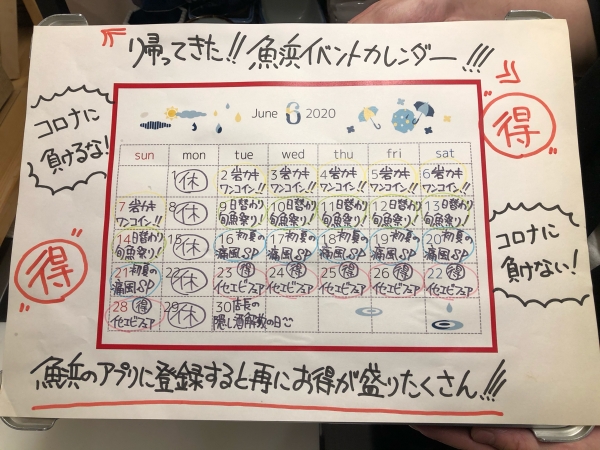 『帰ってきた!!魚浜イベントカレンダー!!!』
コロナに
負けるな!
得
June 6 2020
sun mon tue wed thu fri sat
1 休 2 岩カキ ワンコイン!! 3 岩カキ ワンコイン!! 4 岩カキ ワンコイン!! 5 岩カキ ワンコイン!! 6 岩カキ ワンコイン!!
7 岩カキ ワンコイン!! 8 休 9 日替わり 旬魚祭り! 10 日替わり 旬魚祭り! 11 日替わり 旬魚祭り! 12 日替わり 旬魚祭り! 13 日替わり 旬魚祭り!
14 日替わり 旬魚祭り! 15 休 16 初夏の 痛風SP 17 初夏の 痛風SP 18 初夏の 痛風SP 19 初夏の 痛風SP 20 初夏の 痛風SP
21 初夏の 痛風SP 22 休 23 得 化エビフェア 24 得 化エビフェア 25 得 化エビフェア 26 得 化エビフェア 22 得 化エビフェア
28 得 化エビフェア 29 休 30 店長の 隠し酒解放の日
得
コロナに
負けない!
魚浜のアプリに登録すると再にお得が盛りたくさん!!!